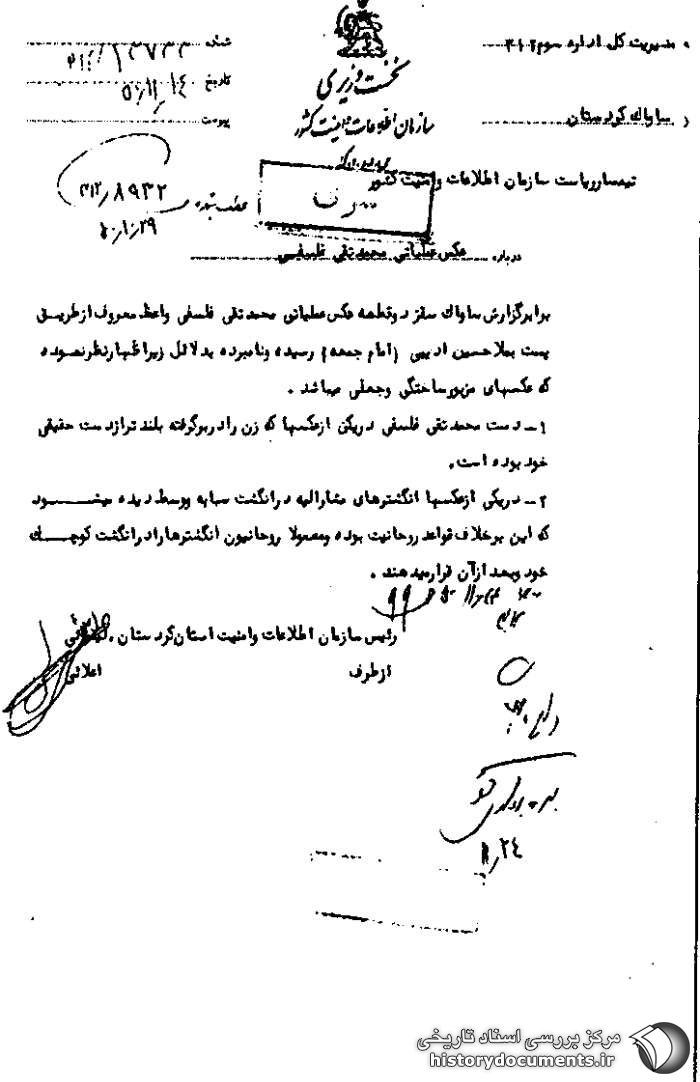 مدیریت کل اداره سوم ۳۱۲
شماره
تاریخ ۵۰/۱۱/۱۴
پیوست
نخست وزیری
سازمان اطلاعات و امنیت کشور
ساواک کردستان
تیمسار ریاست سازمان اطلاعات و امنیت کشور
۳۱۲/۸۹۳۲
۵۰/۱۰/۲۹
درباره عکس عملیاتی محمدتقی فلسفی
برابر گزارش ساواک سقز دو قطعه عکس عملیاتی محمدتقی فلسفی واعظ معروف از طریق
پست بملا حسین ادیبی (امام جمعه) رسیده و نامبرده بدلائل زیر اظهارنظر نموده
که عکسهای مزبور ساختگی و جعلی میباشد .
۱- دست محمدتقی فلسفی در یکی از عکسها که زن را در بر گرفته بلندتر از دست حقیقی
خود بوده است.
۲- در یکی از عکسها انگشترهای مشارالیه در انگشت سبابه و وسط دیده میشود
که این برخلاف قواعد روحانیت بوده و معمولا روحانیون انگشترها را در انگشت کوچک
خود و بعد از آن قرار میدهند .
رئیس سازمان اطلاعات و امنیت استان کردستان .
از طرف
۱۱/۲۴
مرکز بررسی اسناد تاریخی
historydocuments.ir